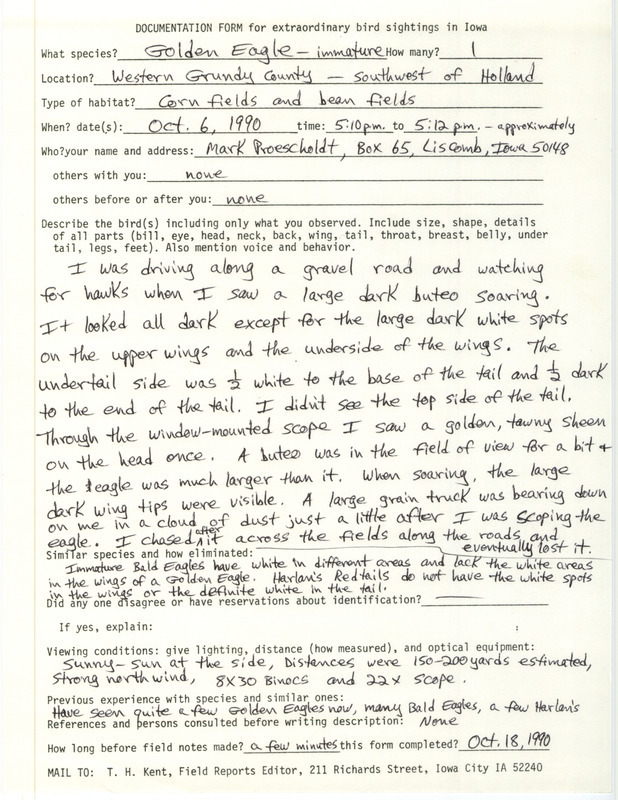 DOCUMENTATION FORM for extraordinary bird sightings in Iowa
What species? Golden Eagle - immature How many? 1
Location? Western Grundy County - Southwest of Holland
Type of habitat? Corn fields and bean fields
When? date(s): Oct. 6, 1990 time: 5:10 p.m. to 5:12 p.m. - approximately
Who?your name and address: Mark Proescholdt, Box 65, Liscomb, Iowa 50148
others with you: none
others before or after you: none
Describe the bird(s) including only what you observed. Include size, shape, details
of all parts (bill, eye, head, neck, back, wing, tail, throat, breast, belly, under
tail, legs, feet). Also mention voice and behavior.
I was driving along a gravel road and watching
for hawks when I saw a large dark buteo soaring.
It looked all dark except for the large dark white spots
on the upper wings and the underside of the wings. The
undertail side was ½ white to the base of the tail and ½ dark
to the end of the tail. I didn't see the top side of the tail.
Through the window-mounted scope I saw a golden, tawny sheen
on the head once. A buteo was in the field of view for a bit +
the eagle was much larger than it. When soaring, the large
dark wing tips were visible. A large grain truck was bearing down
on me in a cloud of dust just a little after I was scoping the
eagle. I chased after it across the fields along the roads and
eventually lost it.
Similar species and how eliminated:
Immature Bald Eagles have white in different areas and lack the white areas
in the wings of a Golden Eagle. Harlan's Redtails do not have the white spots
in the wings or the definite white in the tail.
Did any one disagree or have reservations about identification?
If yes, explain:
Viewing conditions: give lighting, distance (how measured), and optical equipment:
Sunny - sun at the side, Distances were 150-200 yards estimated,
strong north wind, 8X30 Binocs and 22x scope.
Previous experience with species and similar ones:
Have seen quite a few Golden Eagles now, many Bald Eagles, a few Harlan's
References and persons consulted before writing description: None
How long before field notes made? a few minutes this form completed? Oct. 18, 1990
MAIL TO: T. H. Kent, Field Reports Editor, 211 Richards Street, Iowa City IA 52240